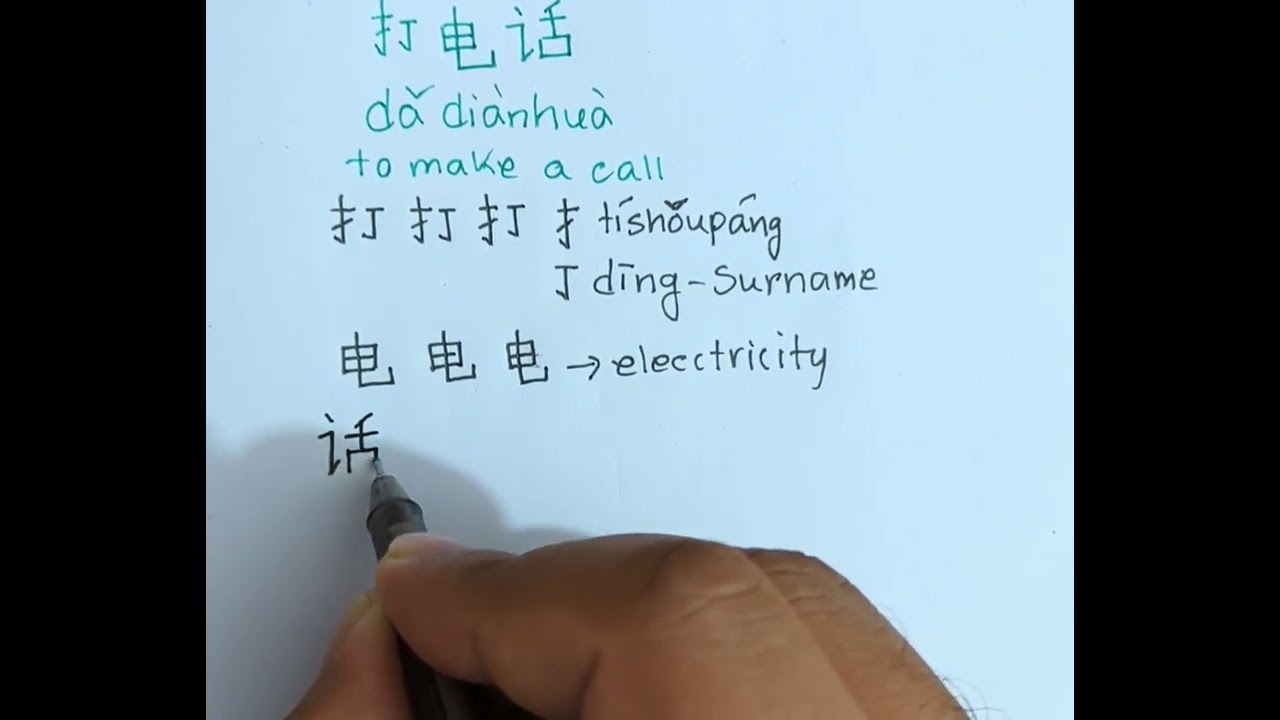 打电话
dǎ diànhuà
to make a call
打 打 打 扌 tíshǒupáng
丁 dīng - Surname
电 电 电 → elecctricity
话